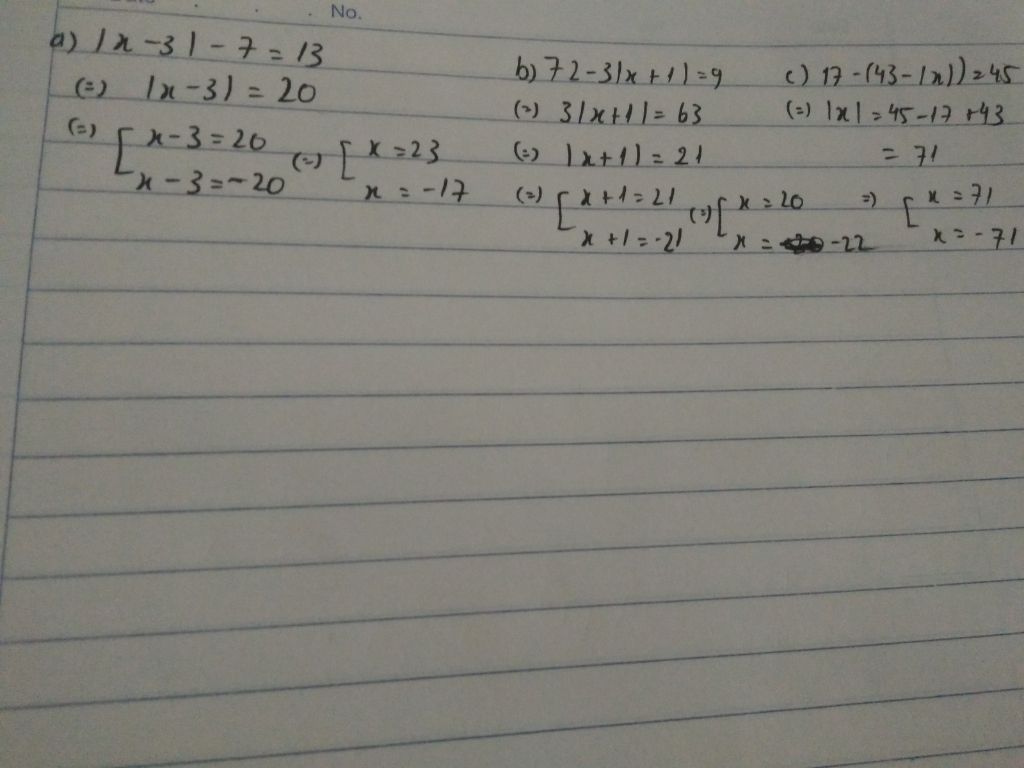 No.
a) |x - 3| - 7 = 13
(=) |x - 3| = 20
(=) [ x - 3 = 20 (=) [ x = 23
x - 3 = -20 x = -17
b) 72 - 3|x + 1| = 9
(=) 3|x + 1| = 63
(=) |x + 1| = 21
(=) [ x + 1 = 21 (=) [ x = 20
x + 1 = -21 x = -22
c) 17 - (43 - |x|) = 45
(=) |x| = 45 - 17 + 43
= 71
=) [ x = 71
x = - 71